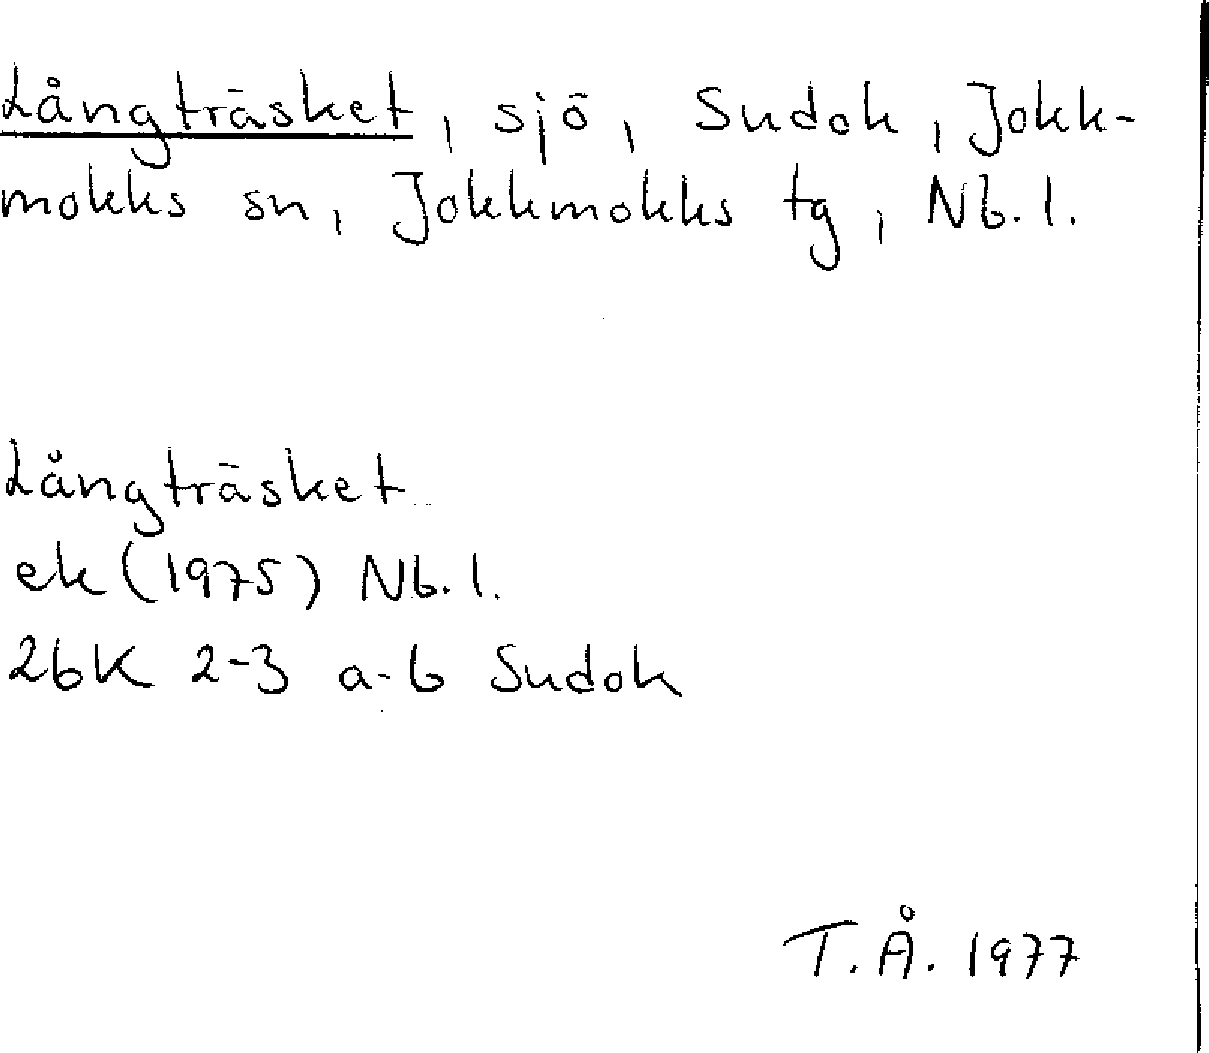 Långträsket, sjö, Sudok, Jokk-
mokks sn, Jokkmokks tg, Nb. l.
Långträsket
ek (1975) Nb. l.
26K 2-3 a-b Sudok
T.Å. 1977